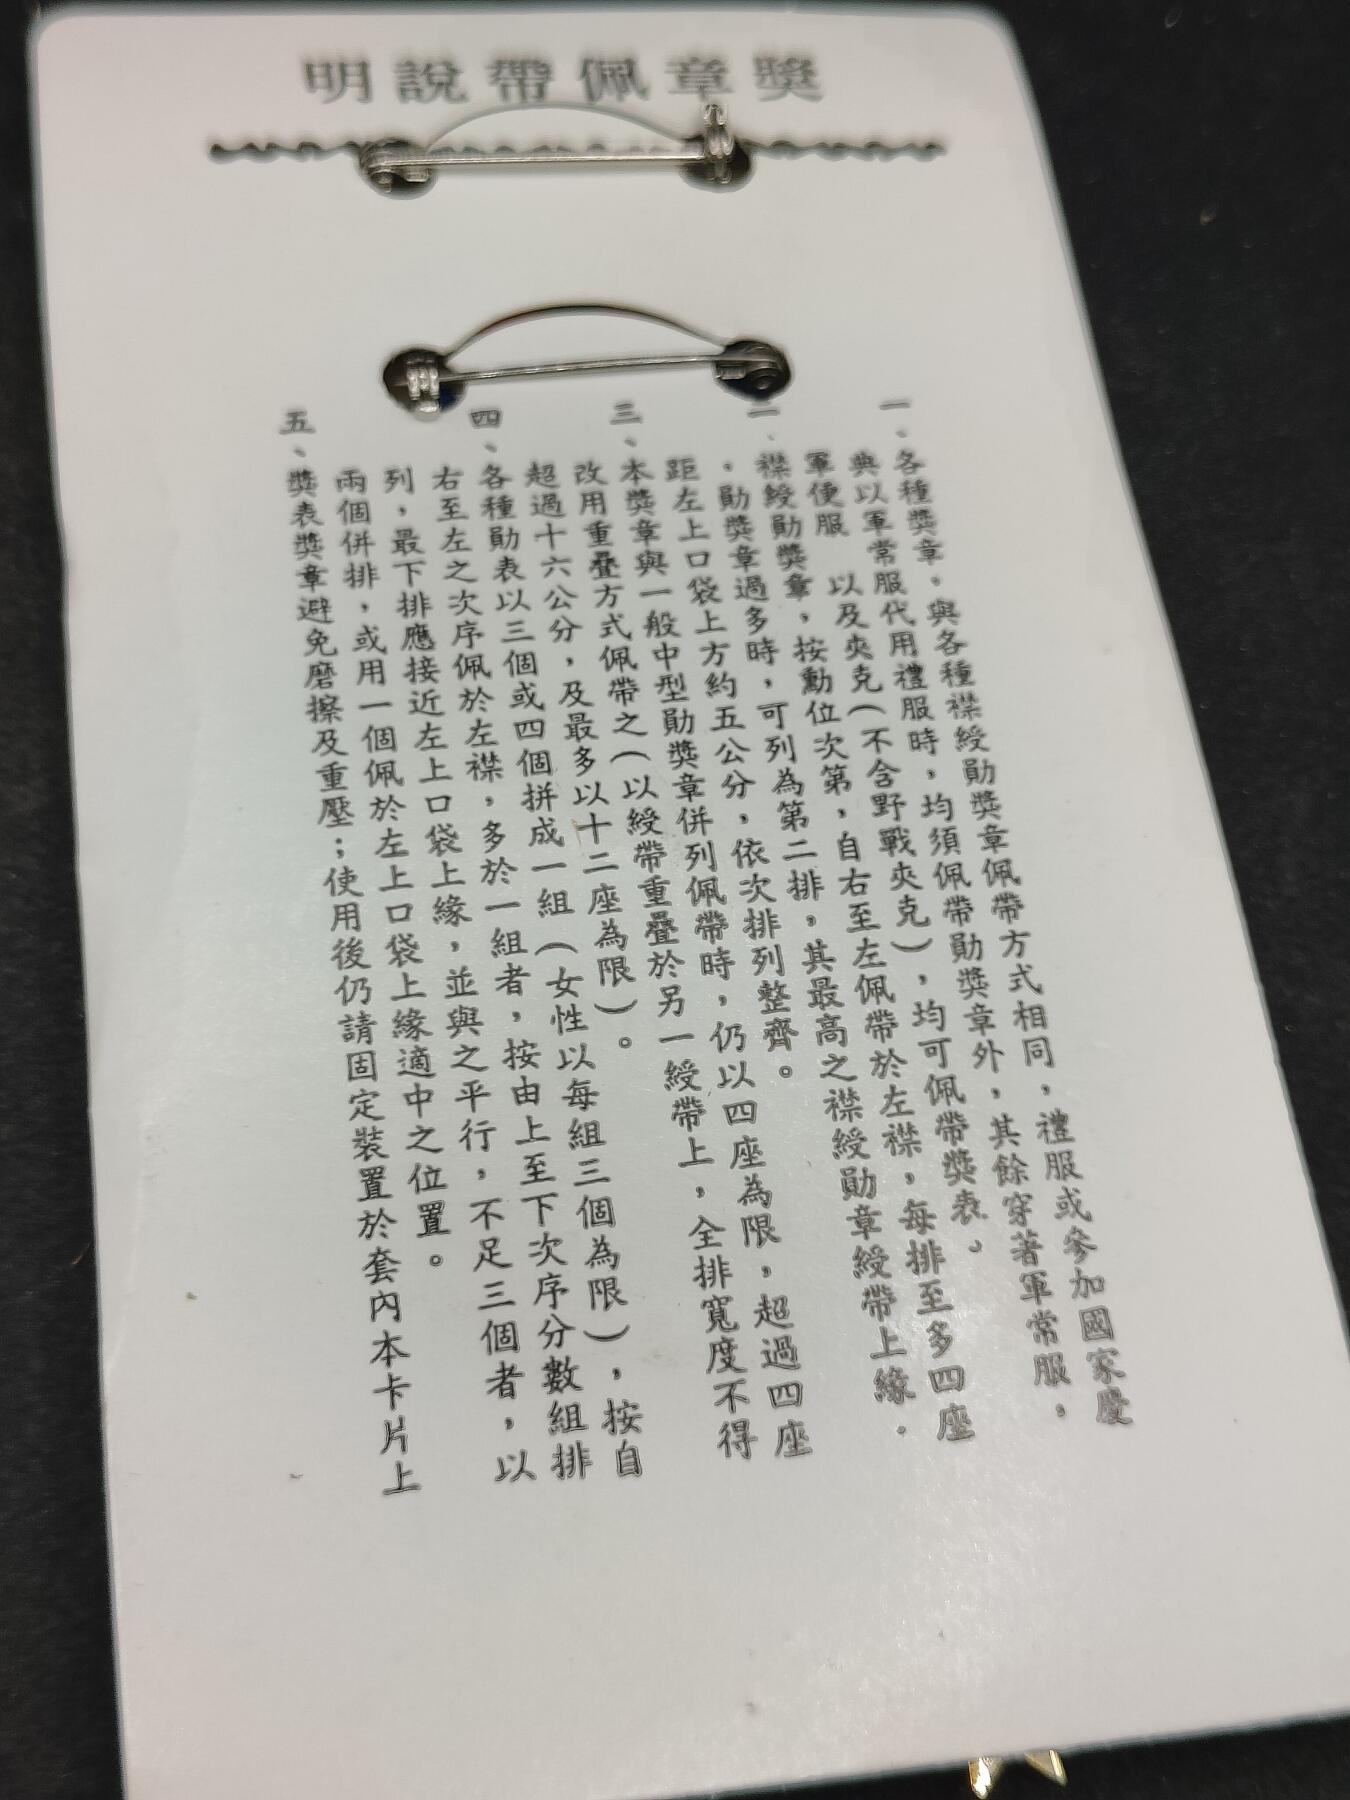 獎章佩帶說明
一、各種獎章,與各種襟綬勛獎章佩帶方式相同,禮服或參加國家慶
典以軍常服代用禮服時,均須佩帶勛獎章外,其餘穿著軍常服,
軍便服 以及夾克(不含野戰夾克),均可佩帶獎表。
二、襟綬勛獎章,按勳位次第,自右至左佩帶於左襟,每排至多四座
,勛獎章過多時,可列為第二排,其最高之襟綬勛章綬帶上緣.
距左上口袋上方約五公分,依次排列整齊。
三、本獎章與一般中型勛獎章併列佩帶時,仍以四座為限,超過四座
改用重疊方式佩帶之(以綬帶重疊於另一綬帶上,全排寬度不得
超過十六公分,及最多以十二座為限)。
四、各種勛表以三個或四個拼成一組(女性以每組三個為限),按自
右至左之次序佩於左襟,多於一組者,按由上至下次序分數組排
列,最下排應接近左上口袋上緣,並與之平行,不足三個者,以
兩個併排,或用一個佩於左上口袋上緣適中之位置。
五、獎表獎章避免磨擦及重壓;使用後仍請固定裝置於套內本卡片上